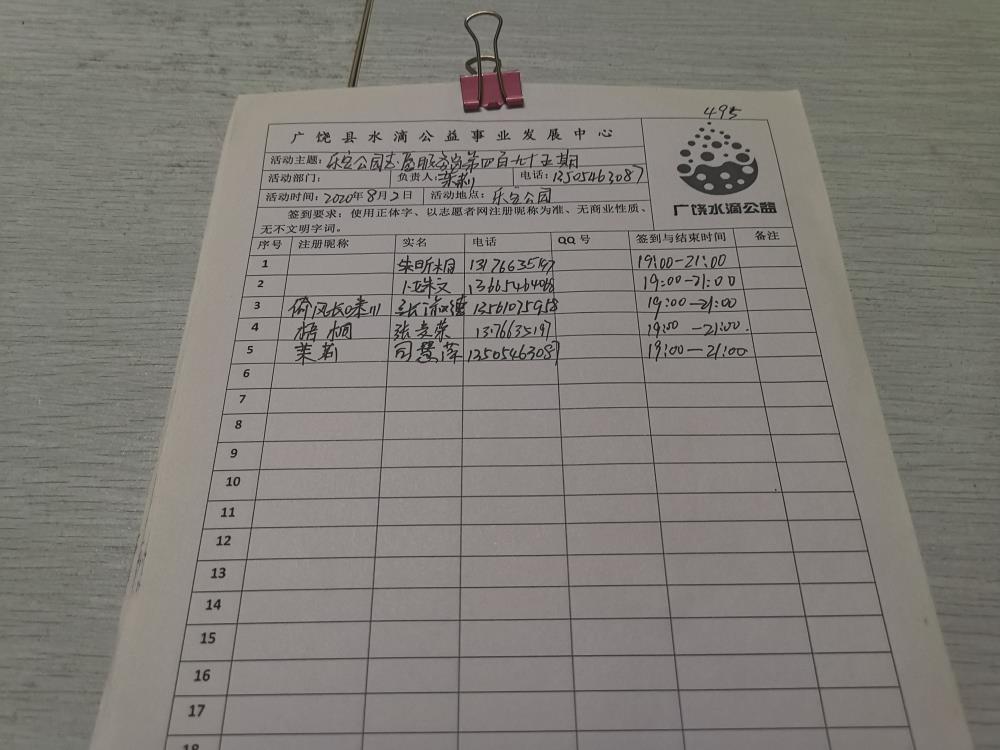 495
广饶县水滴公益事业发展中心
活动主题：乐安公园志愿服务岗第四百九十五期
活动部门： 负责人：茉莉 电话：13505463087
活动时间：2020年8月2日 活动地点：乐安公园
广饶水滴公益
签到要求：使用正体字、以志愿者网注册昵称为准、无商业性质、
无不文明字词。
序号 注册昵称 实名 电话 QQ号 签到与结束时间 备注
1 朱昕桐 13176635197 19:00-21:00
2 19:00-21:00
3 19:00-21:00
4 梧桐 13176635197 19:00-21:00.
5 茉莉 司慧萍 13505463087 19:00-21:00
6
7
8
9
10
11
12
13
14
15
16
17
18